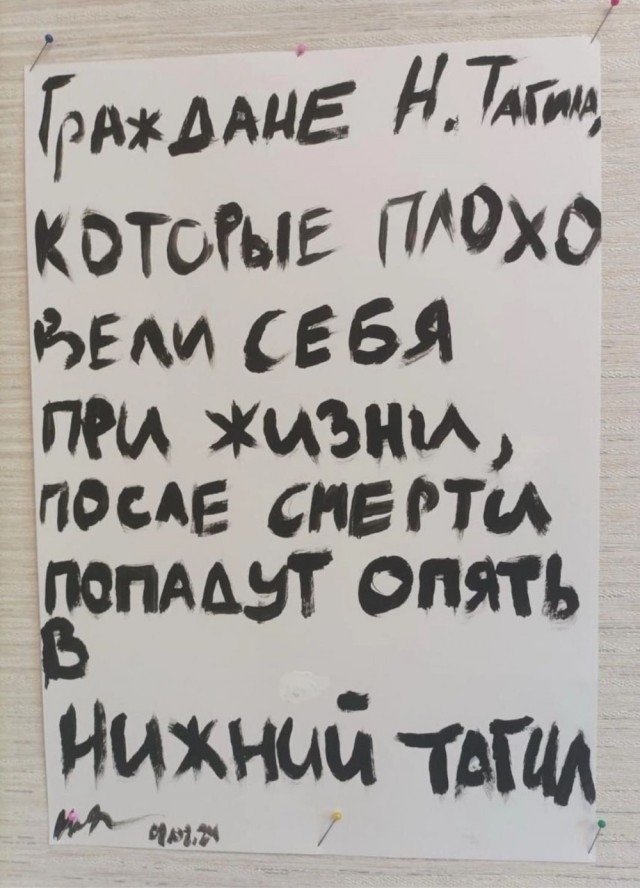 Граждане Н. Тагила,
которые плохо
вели себя
при жизни,
после смерти
попадут опять
в
Нижний Тагил